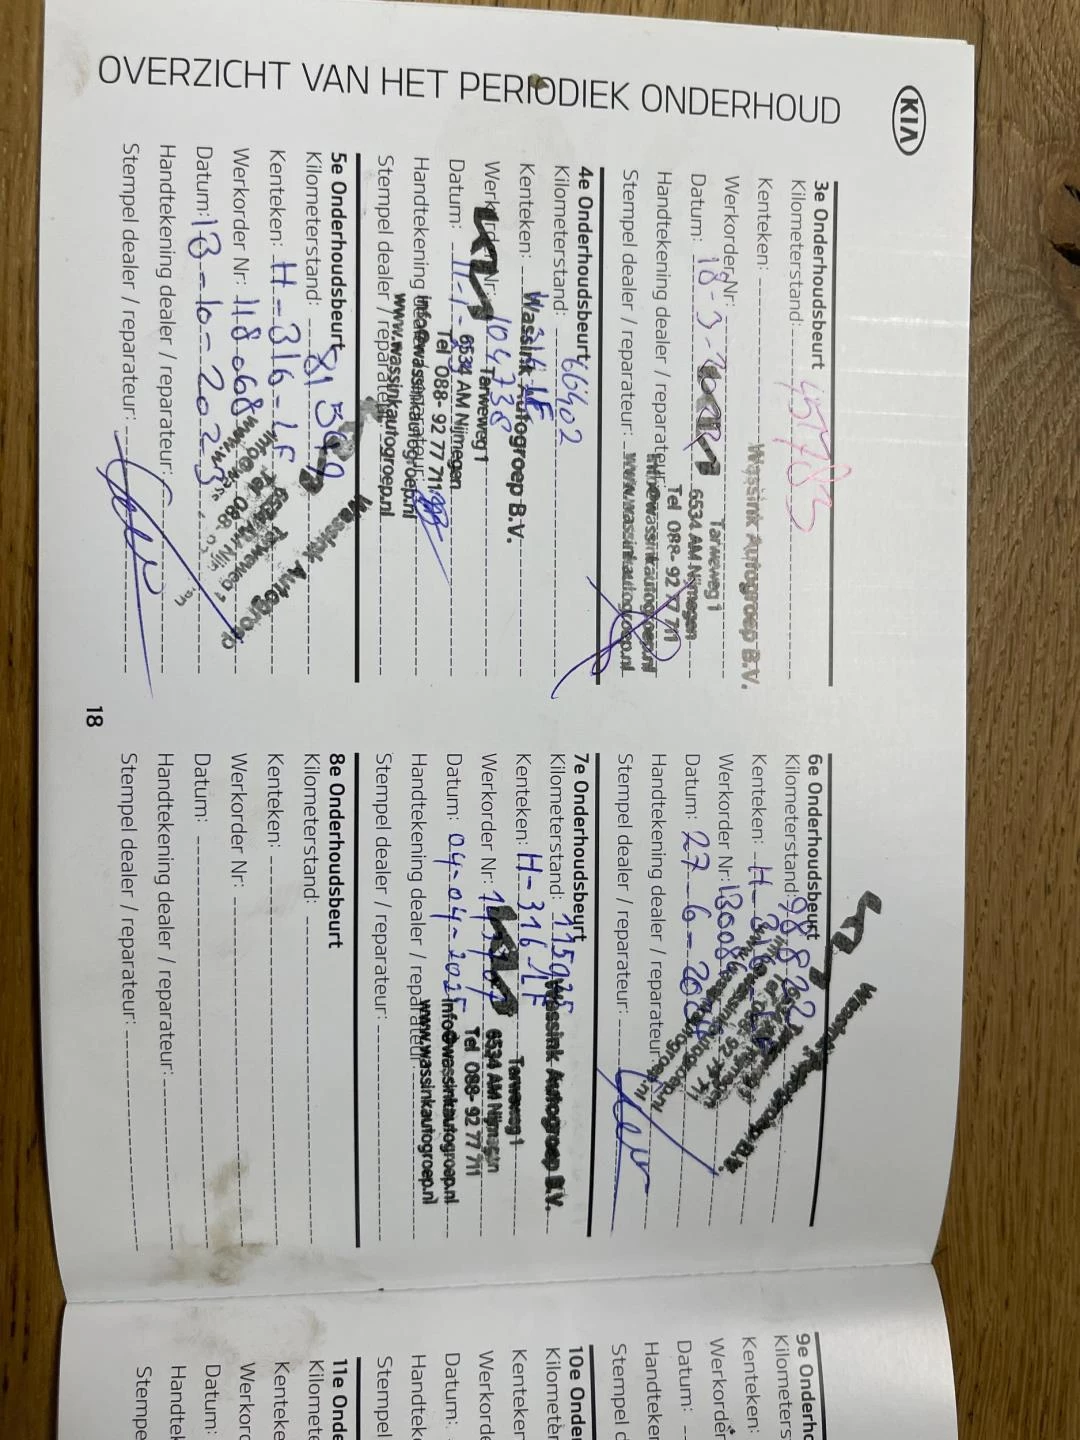 KIA
OVERZICHT VAN HET PERIODIEK ONDERHOUD
3e Onderhoudsbeurt
Kilometerstand: 45783
Kenteken:
Wassink Autogroep B.V.
Werkorder Nr:
Tarweweg 1
Datum: 18-3-
6534 AM Nijmegen
Tel 088- 92 77 711
Handtekening dealer / reparateur:
info@wassinkautogroep.nl
Stempel dealer / reparateur:
www.wassinkautogroep.nl
4e Onderhoudsbeurt
Kilometerstand: 66402
Kenteken:
Wassink Autogroep B.V.
Werkorder Nr: 104738
Tarweweg 1
6534 AM Nijmegen
Datum: 11-1-23
Tel 088- 92 77 711
Handtekening dealer / reparateur:
info@wassinkautogroep.nl
www.wassinkautogroep.nl
Stempel dealer / reparateur:
5e Onderhoudsbeurt
Kilometerstand: 81
Wassink Autogroep
Kenteken: H-316-LF
Werkorder Nr: 118068
Datum: 13-10-2023
Handtekening dealer / reparateur:
Stempel dealer / reparateur:
18
6e Onderhoudsbeurt
Kilometerstand: 98822
Kenteken: H-316-
Wassink Autogroep B.V.
Werkorder Nr:
Datum: 27-6-
Handtekening dealer / reparateur:
Stempel dealer / reparateur:
7e Onderhoudsbeurt
Kilometerstand:
Wassink Autogroep B.V.
Kenteken: H-316-LF
Tarweweg 1
Werkorder Nr:
6534 AM Nijmegen
Tel 088- 92 77 711
Datum: 04-04-2025
info@wassinkautogroep.nl
Handtekening dealer / reparateur:
www.wassinkautogroep.nl
Stempel dealer / reparateur:
8e Onderhoudsbeurt
Kilometerstand:
Kenteken:
Werkorder Nr:
Datum:
Handtekening dealer / reparateur:
Stempel dealer / reparateur:
9e Onderho
Kilometers
Kenteken:
Werkorder
Datum:
Handteker
Stempel d
10e Onder
Kilometer
Kenteken
Werkorde
Datum:
Handtek
Stempel
11e Onde
Kilomete
Kenteke
Werkord
Datum:
Handtek
Stempe